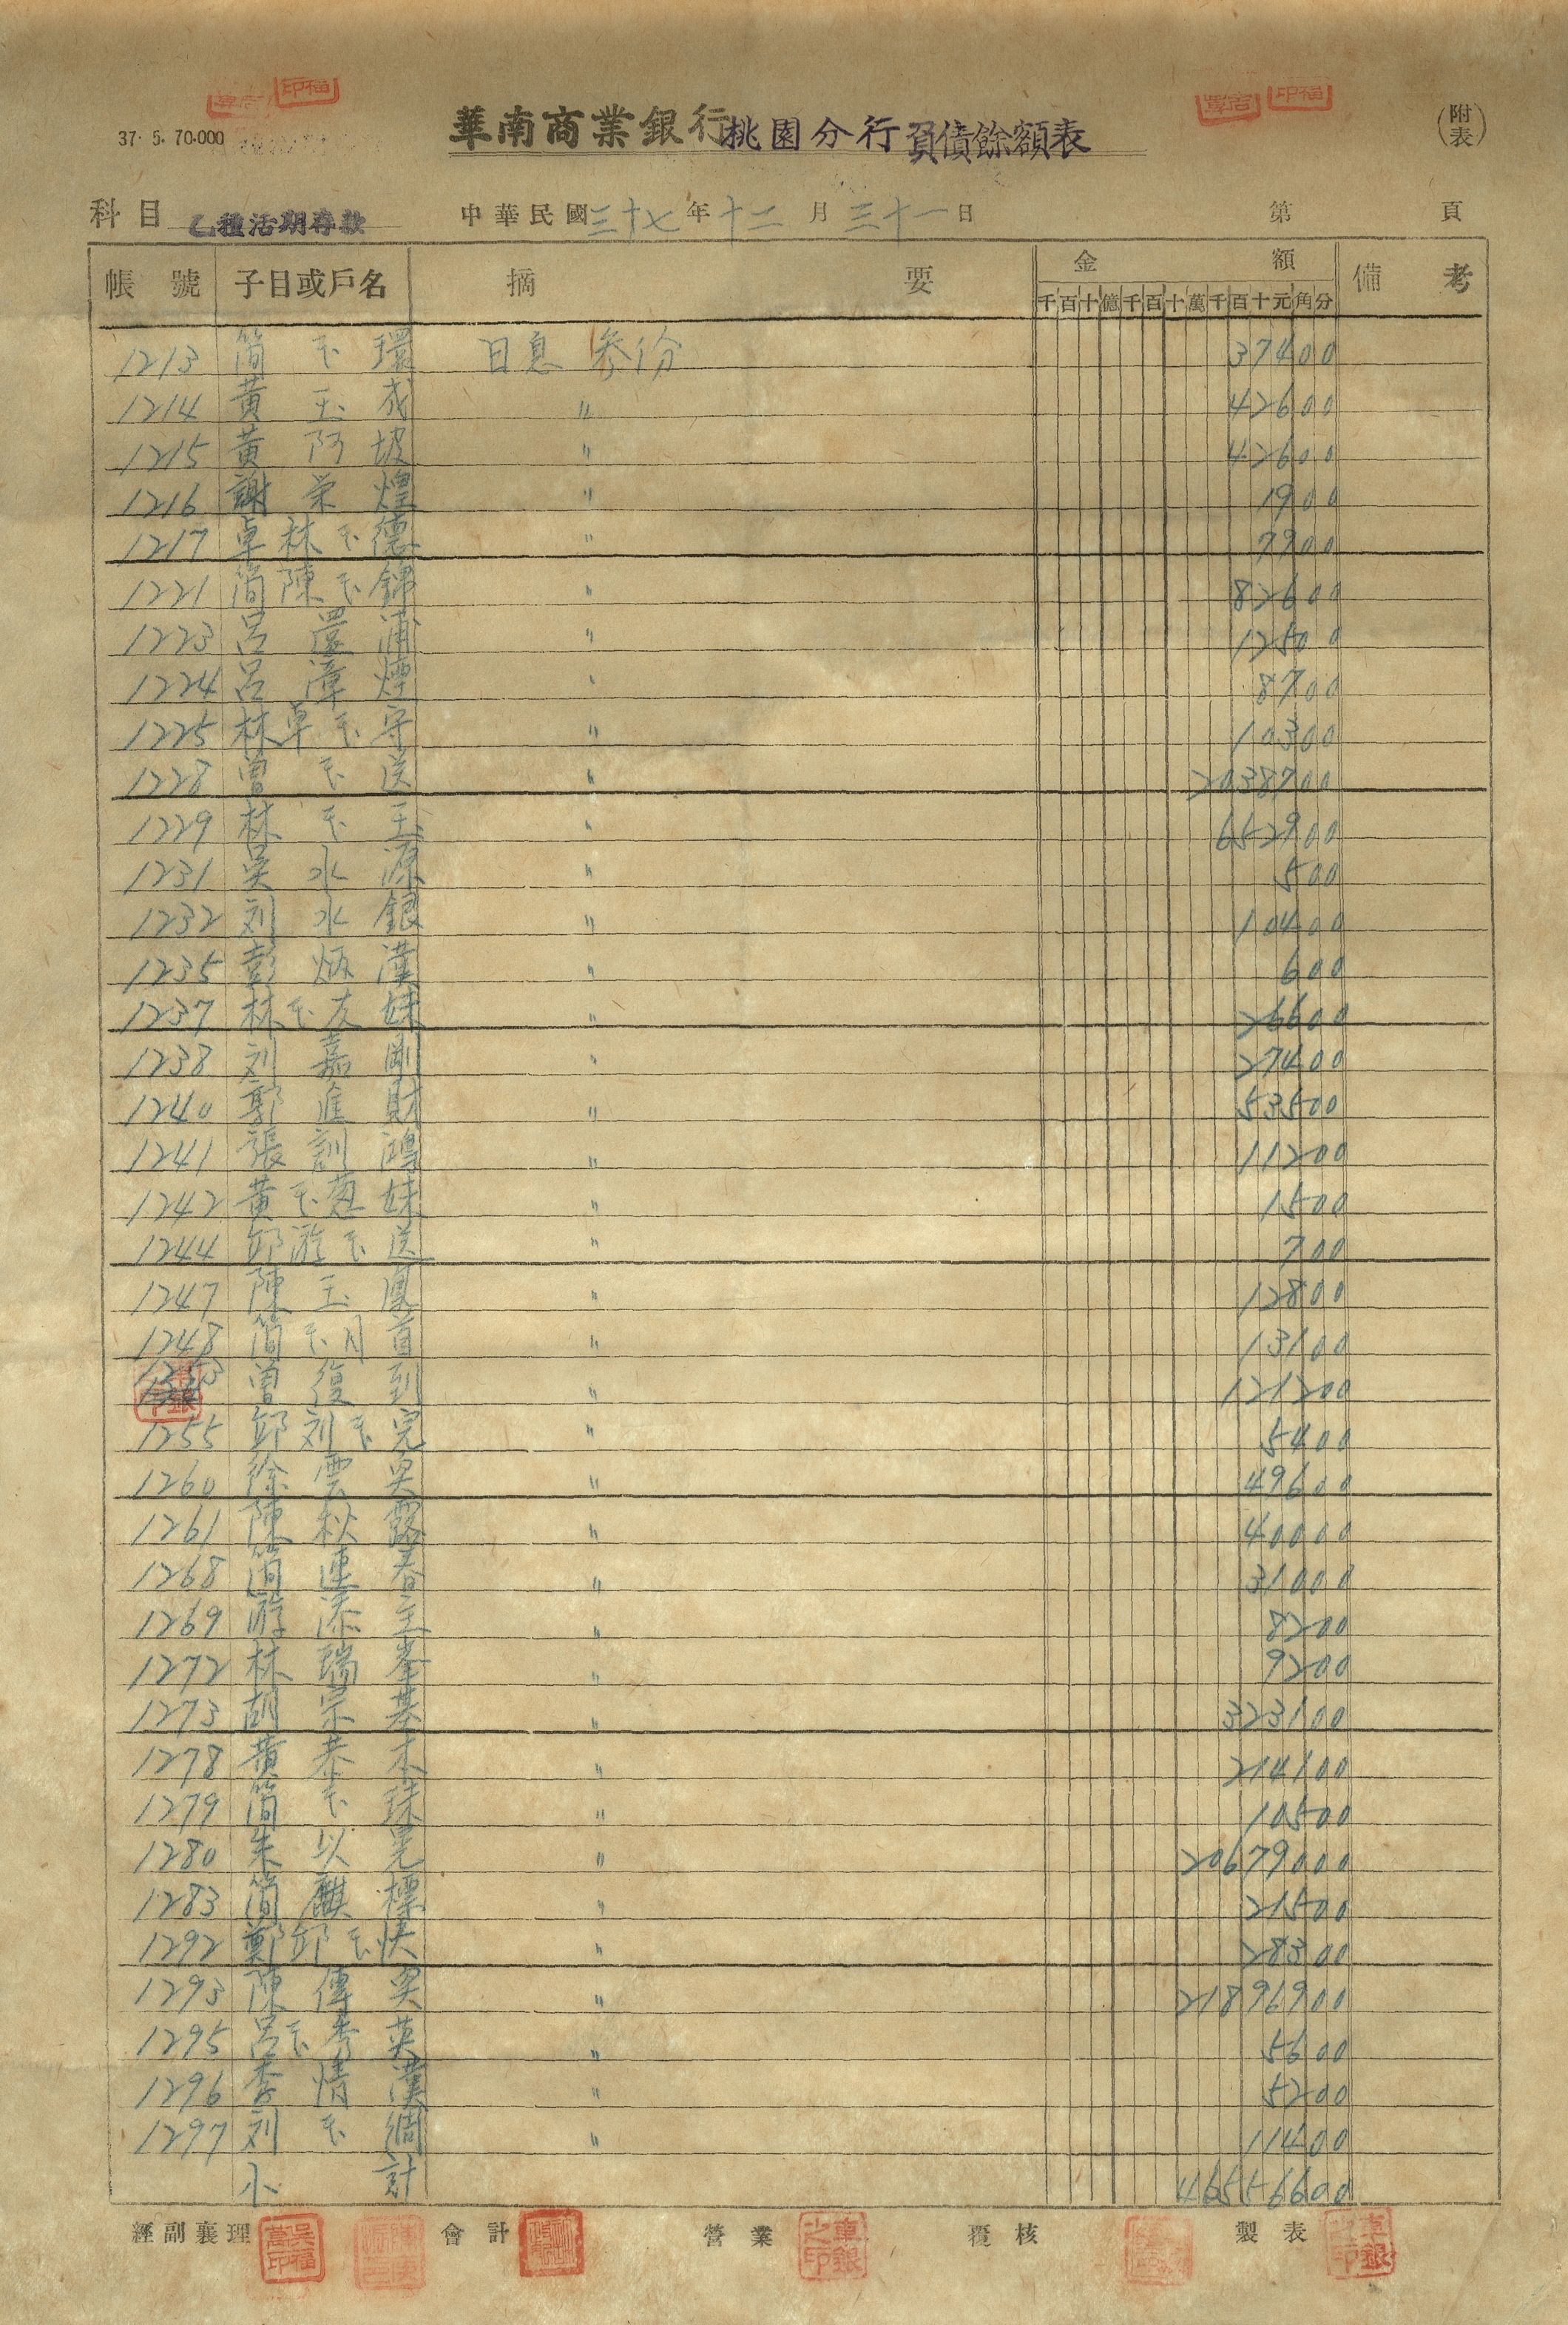 37. 5. 70.000
華南商業銀行桃園分行負債餘額表
(附表)
科目 乙種活期存款 中華民國三十七年十二月三十一日 第 頁
帳號 子目或戶名 摘要 金額 備考
千百十億千百十萬千百十元角分
1213 簡氏環 日息參份 37400
1214 黃玉成 〃 42600
1215 黃阿坡 〃 42600
1216 謝荣煌 〃 1900
1217 卓林氏德 〃 7900
1221 簡陳氏錦 〃 82600
1223 呂還浦 〃 12500
1224 呂漳煙 〃 8700
1225 林卓氏守 〃 10300
1228 曾氏送 〃 2038700
1229 林氏玉 〃 652900
1231 吳水源 〃 500
1232 刘水銀 〃 10400
1235 彭炳漢 〃 600
1237 林氏友妹 〃 26600
1238 刘嘉剛 〃 27400
1240 郭進財 〃 53500
1241 張訓鴻 〃 11200
1242 黃氏葱妹 〃 1500
1244 邱游氏送 〃 700
1247 陳玉鳳 〃 12800
1248 簡氏月首 〃 13100
1253 曾復到 〃 121200
1255 邱刘氏完 〃 5400
1260 徐雲奧 〃 49600
1261 陳秋露 〃 40000
1268 簡連春 〃 31000
1269 游添生 〃 8200
1272 林瑞峯 〃 9200
1273 胡宗基 〃 323100
1278 黃恭木 〃 214100
1279 簡氏珠 〃 10500
1280 朱以晃 〃 20679000
1283 簡麒標 〃 21500
1292 鄭邱氏快 〃 28300
1293 陳傳奧 〃 21896900
1295 呂氏秀英 〃 5600
1296 李情漢 〃 5200
1297 刘氏綢 〃 11400
小計 46556600
經副襄理 會計 營業 覆核 製表